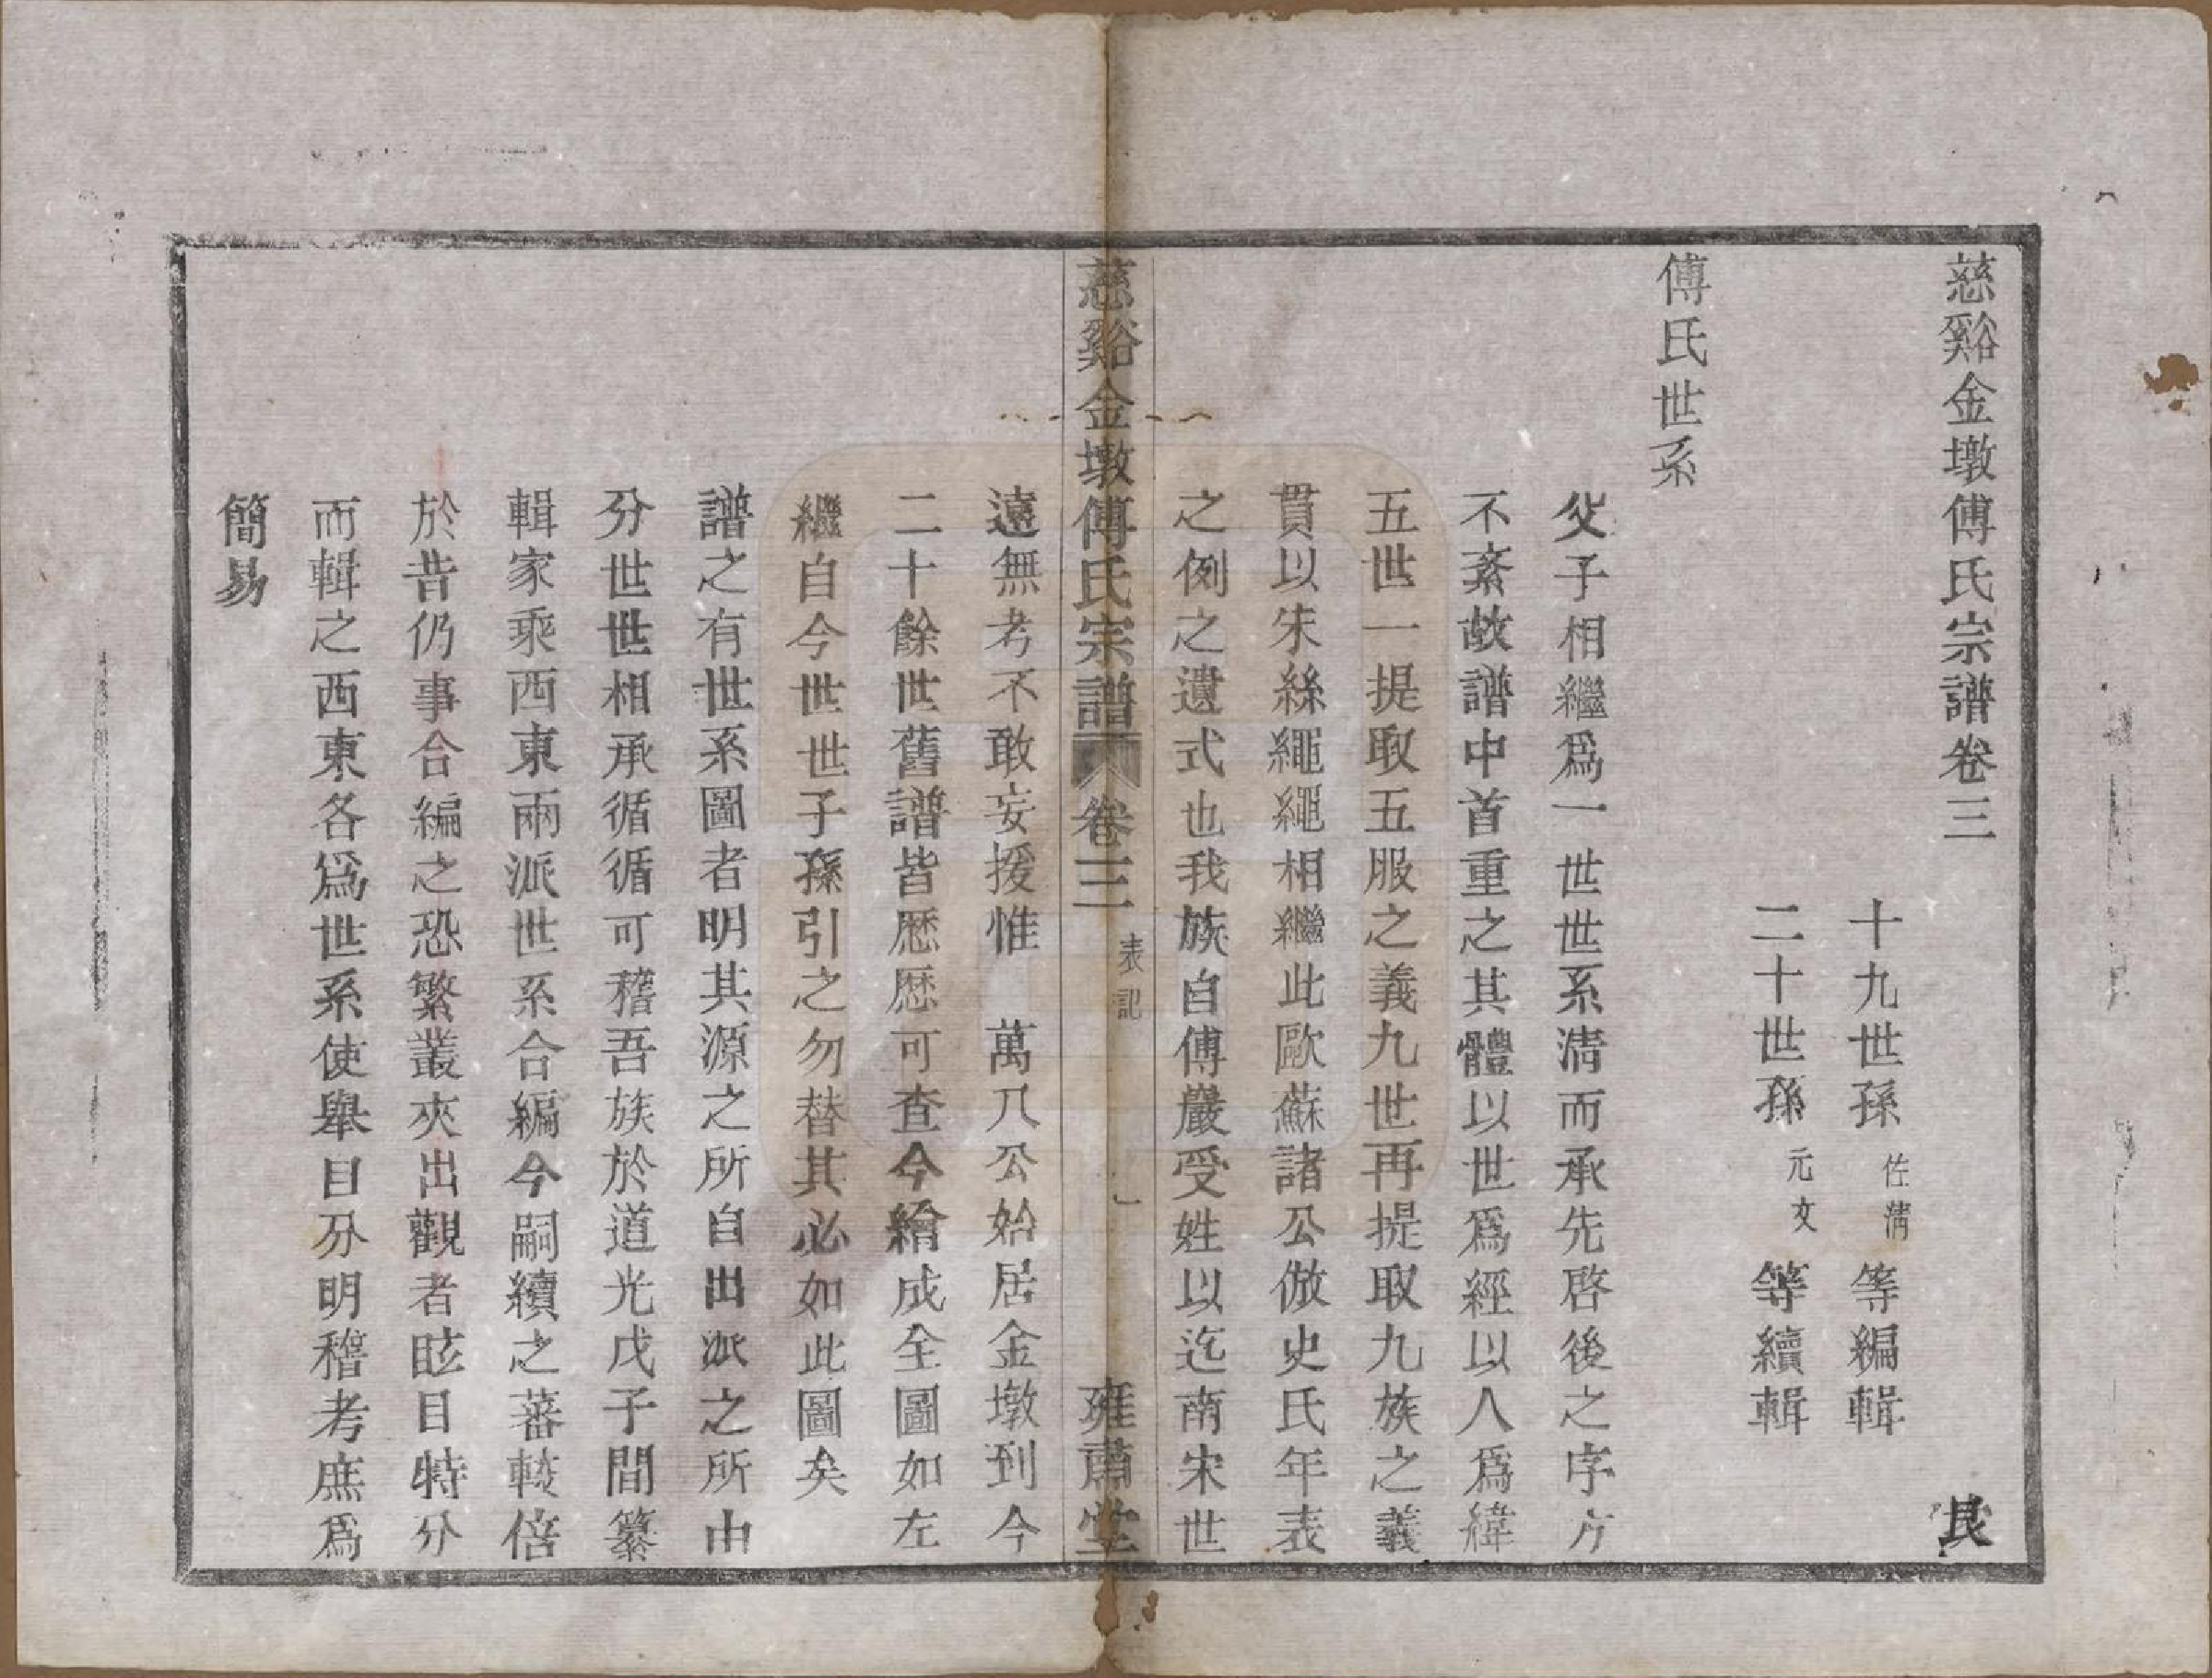 慈谿金墩傅氏宗譜卷三　艮
十九世孫佐清等編輯
二十世孫元文等續輯
傅氏世系
父子相繼爲一世世系清而承先啓後之序方
不紊故譜中首重之其體以世爲經以人爲緯
五世一提取五服之義九世再提取九族之義
貫以朱絲繩繩相繼此歐蘇諸公倣史氏年表
之例之遺式也我族自傅巖受姓以迄南宋世
慈谿金墩傅氏宗譜　卷三　表記　一　雍肅堂
遠無考不敢妄援惟　萬八公始居金墩到今
二十餘世舊譜皆歷歷可查今繪成全圖如左
繼自今世世子孫引之勿替其必如此圖矣
譜之有世系圖者明其源之所自出派之所由
分世世相承循循可稽吾族於道光戊子間纂
輯家乘西東兩派世系合編今嗣續之蕃較倍
於昔仍事合編之恐繁叢夾出觀者眩目特分
而輯之西東各爲世系使舉目分明稽考庶爲
簡易